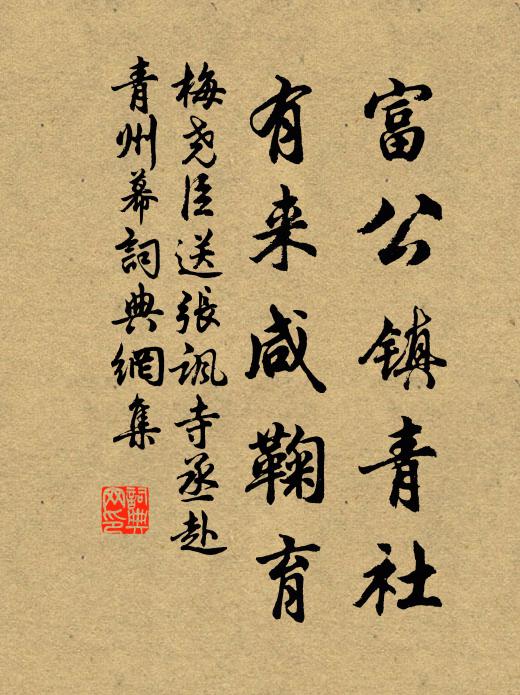 富公镇青社
有来咸鞠育
梅尧臣送張諷寺丞赴
青州幕詞典網集
詞典
网印